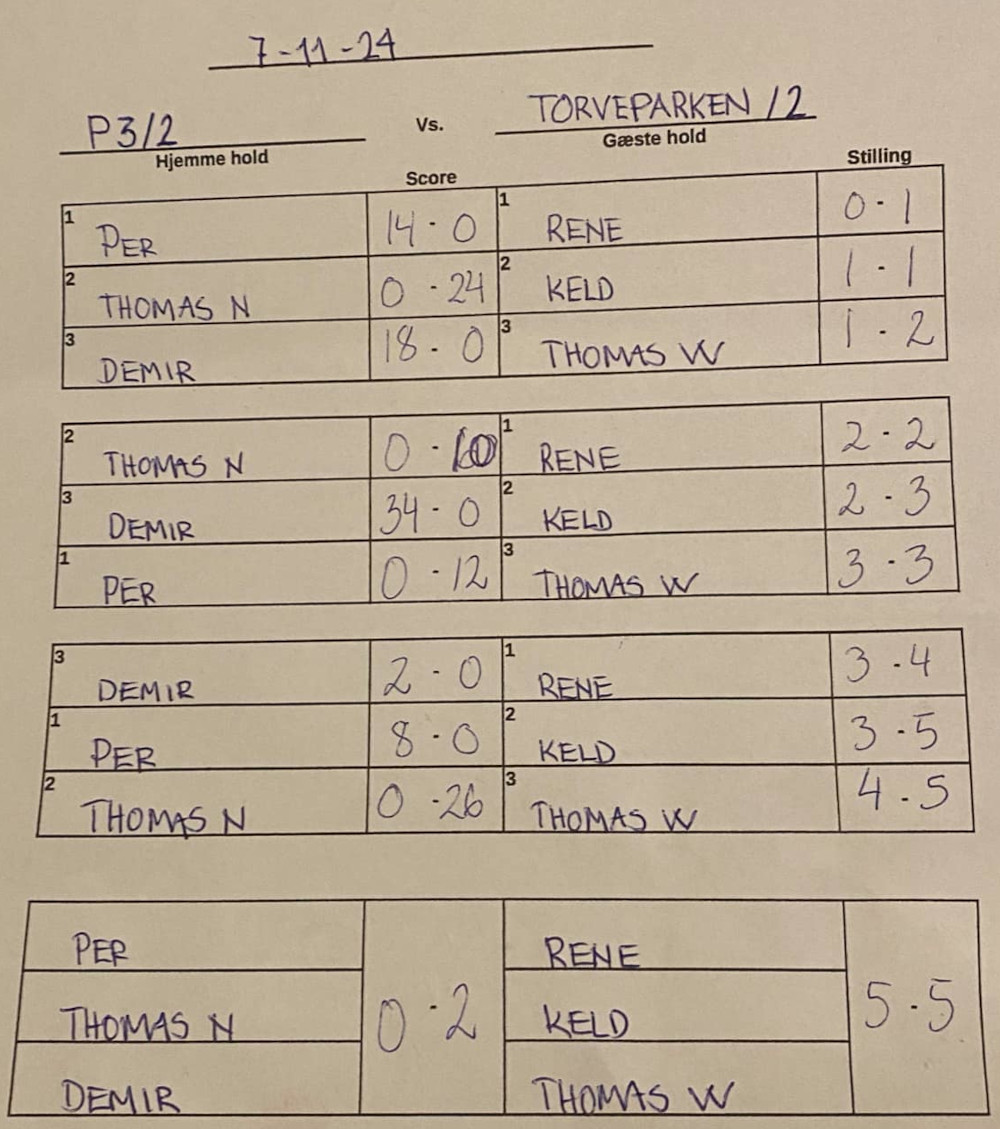 7-11-24
P3/2 Vs. TORVEPARKEN /2
Hjemme hold Gæste hold
Score Stilling
1 PER 14-0 1 RENE 0-1
2 THOMAS N 0-24 2 KELD 1-1
3 DEMIR 18-0 3 THOMAS W 1-2
2 THOMAS N 0- 1 RENE 2-2
3 DEMIR 34-0 2 KELD 2-3
1 PER 0-12 3 THOMAS W 3-3
3 DEMIR 2-0 1 RENE 3-4
1 PER 8-0 2 KELD 3-5
2 THOMAS N 0-26 3 THOMAS W 4-5
PER RENE
THOMAS N 0-2 KELD 5-5
DEMIR THOMAS W